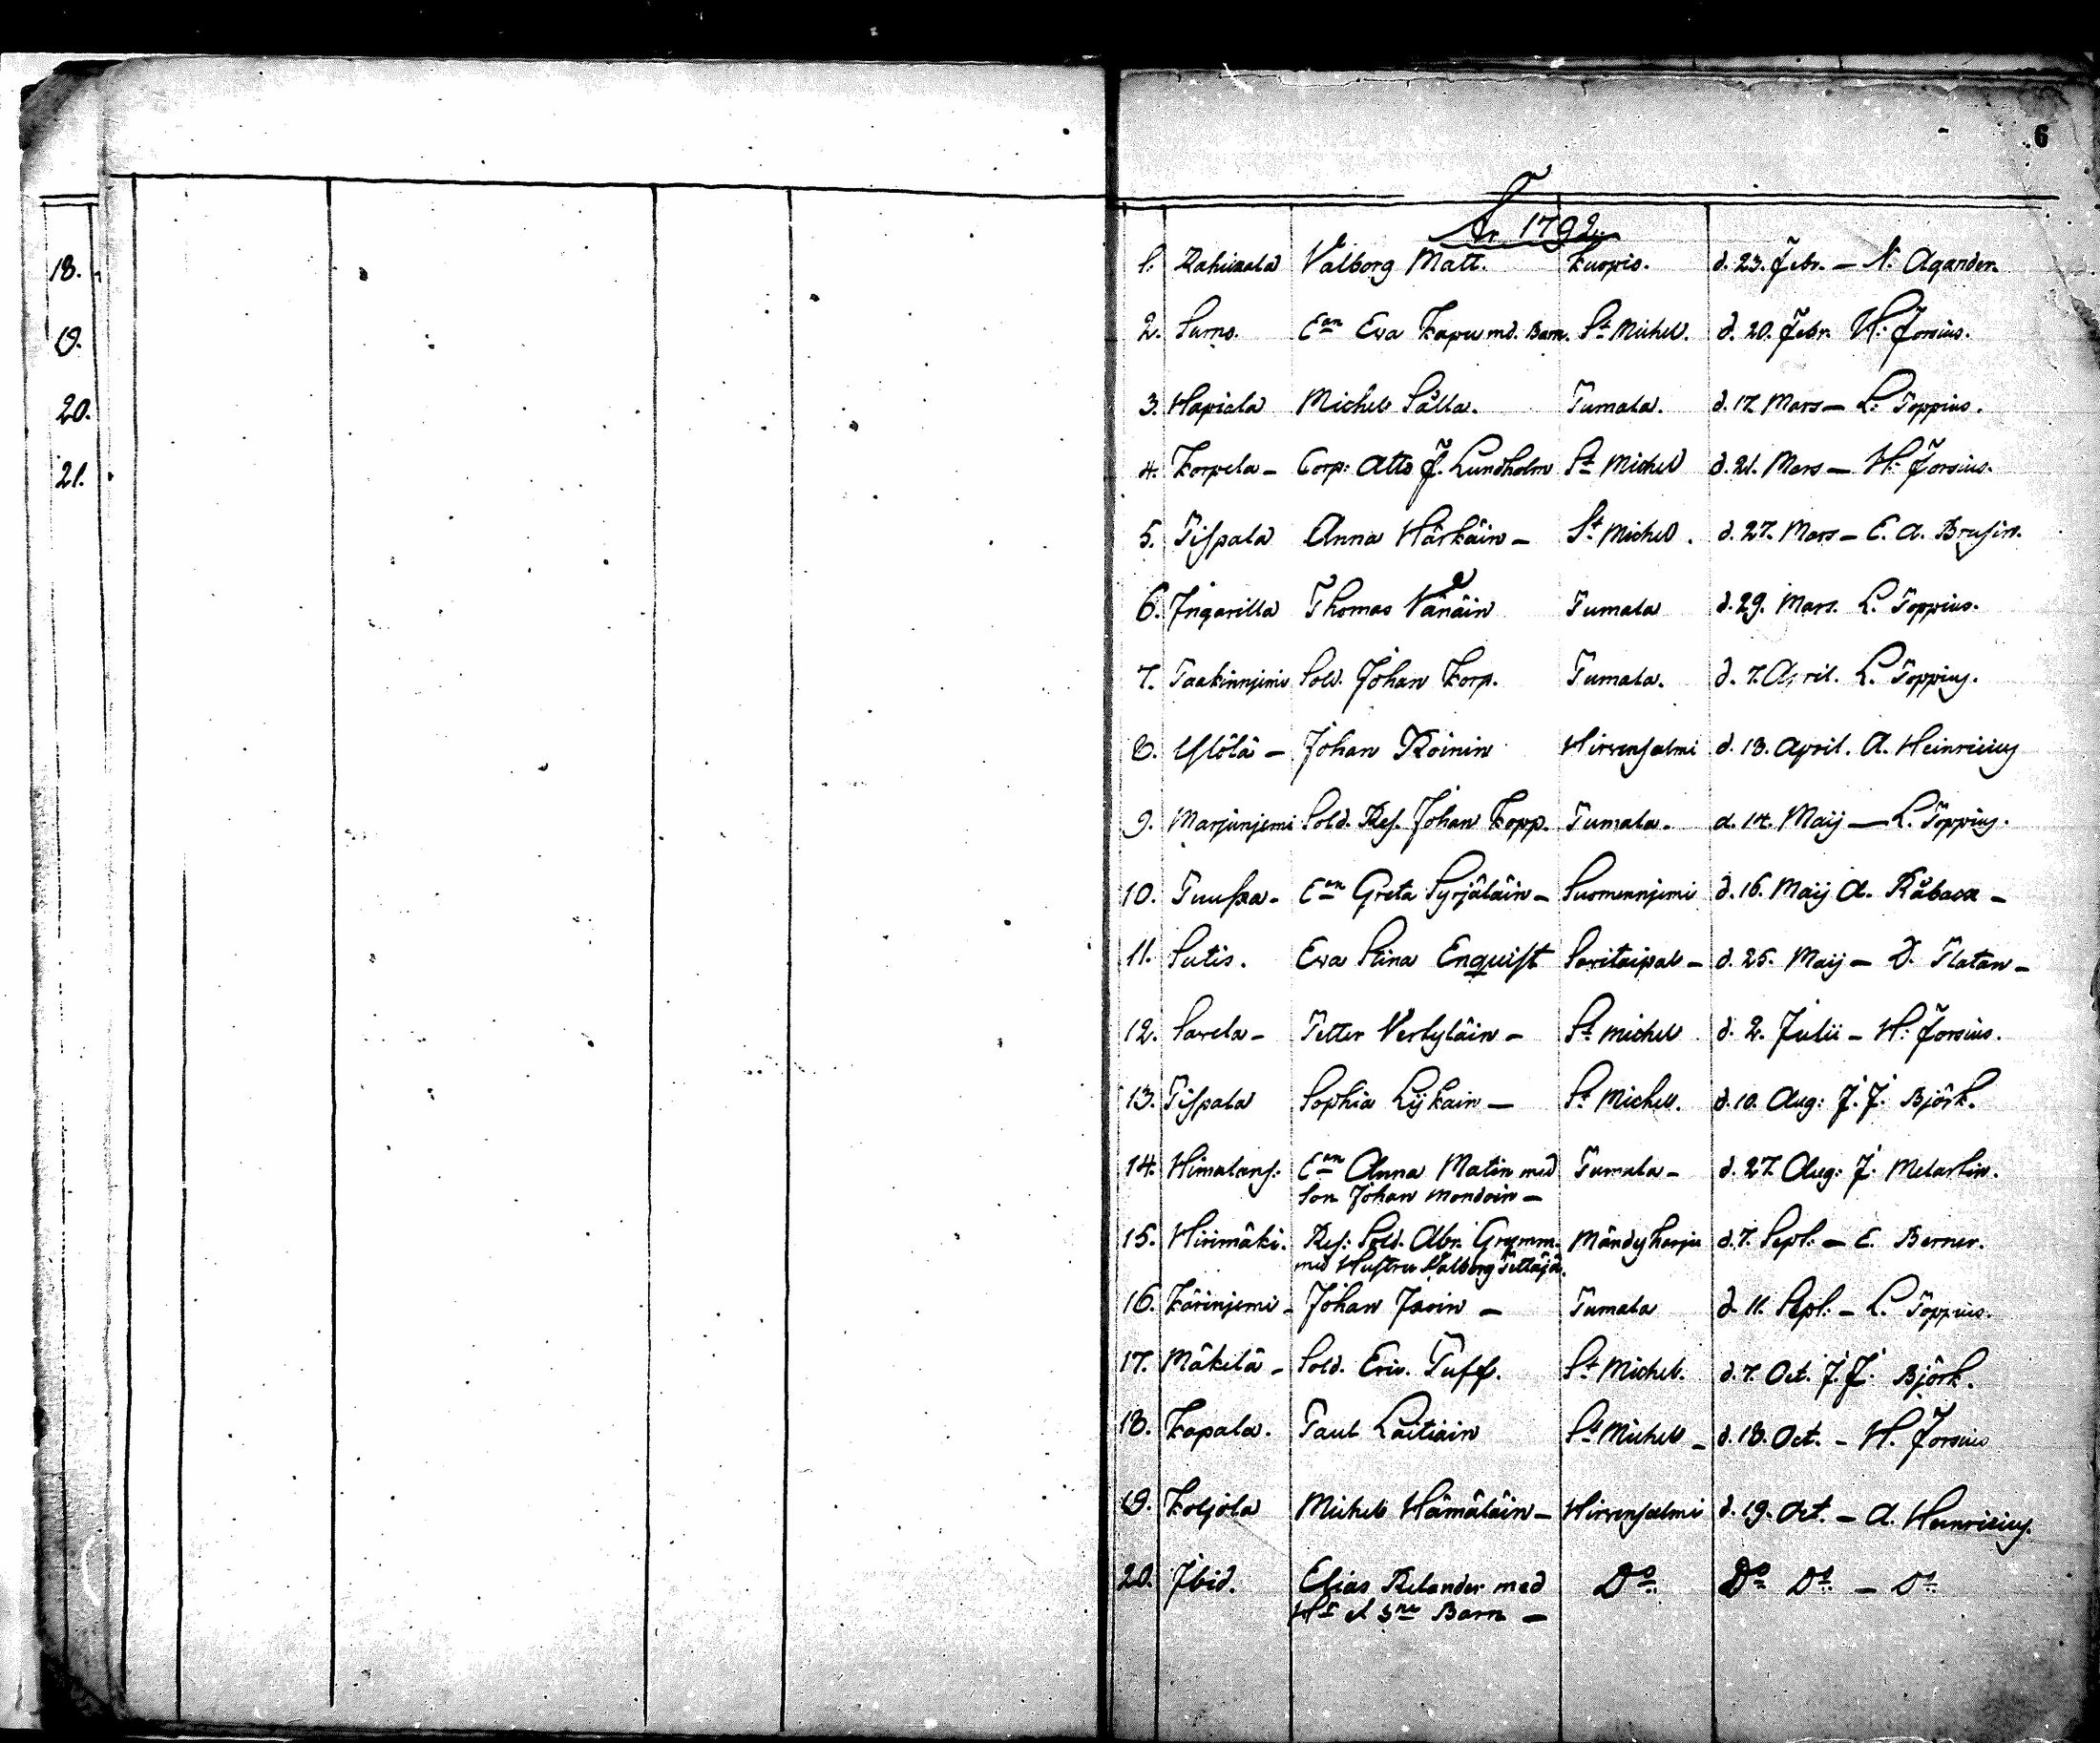 18.
19.
20.
21.
6
År 1792.
1. Rahikala Valborg Matt. Kuopio. d. 23. Febr. — N. Agander.
2. Surno. Enk. Eva Kapu md. Barn. St Michel. d. 20. Febr. H: Forsius.
3. Hapiala Michel Sålla. Pumala. d. 17. Mars — L: Poppius.
4. Korpela — Corp: Otto F. Lundholm St Michel d. 21. Mars — H: Forsius.
5. Pispala Anna Härkäin — St Michel. d. 27. Mars — E. A. Brusin.
6. Ingarilla Thomas Vänäin Pumala d. 29. Mars. L. Poppius.
7. Paakinnjemi Sold. Johan Korp. Pumala. d. 7. April. L. Poppius.
8. Johan Roinin Hirvensalmi d. 13. April. A. Heinricius
9. Marjunjemi Sold. Res. Johan Kopp. Pumala. d. 14. Maij — L. Poppius.
10. Enk. Greta Syrjäläin — Suomennjemi d. 16. Maij A. Råbacka —
11. Sutis. Eva Stina Enquist Savitaipal — d. 25. Maij — D. Platan —
12. Savela — Petter Verhyläin — St Michel d. 2. Julii — H: Forsius.
13. Pispala Sophia Lijkain — St Michel. d. 10. Aug: J. J. Björk.
14. Himalans: Enk. Anna Matin med Pumala — d. 27. Aug: J. Melartin.
Son Johan Mondoin —
15. Hirimäki. Res: Sold. Abr. Grymm. Mändyharju d. 7. Sept: — E. Berner.
med Hustru Valborg
16. Kärinjemi — Johan — Pumala d. 11. Sept: — L. Poppius.
17. Mäkelä — Sold. Eric. Puff. St Michel. d. 7. Oct. J. J. Björk.
18. Kapala. Paul Laitiain St Michel — d. 18. Oct. — H. Forsius
19. Koljola Michel Hämäläin — Hirvensalmi d. 19. Oct. — A. Heinricius.
20. Ibid. Elias Relander med Do Do Do — Do
H. d 3ne Barn —